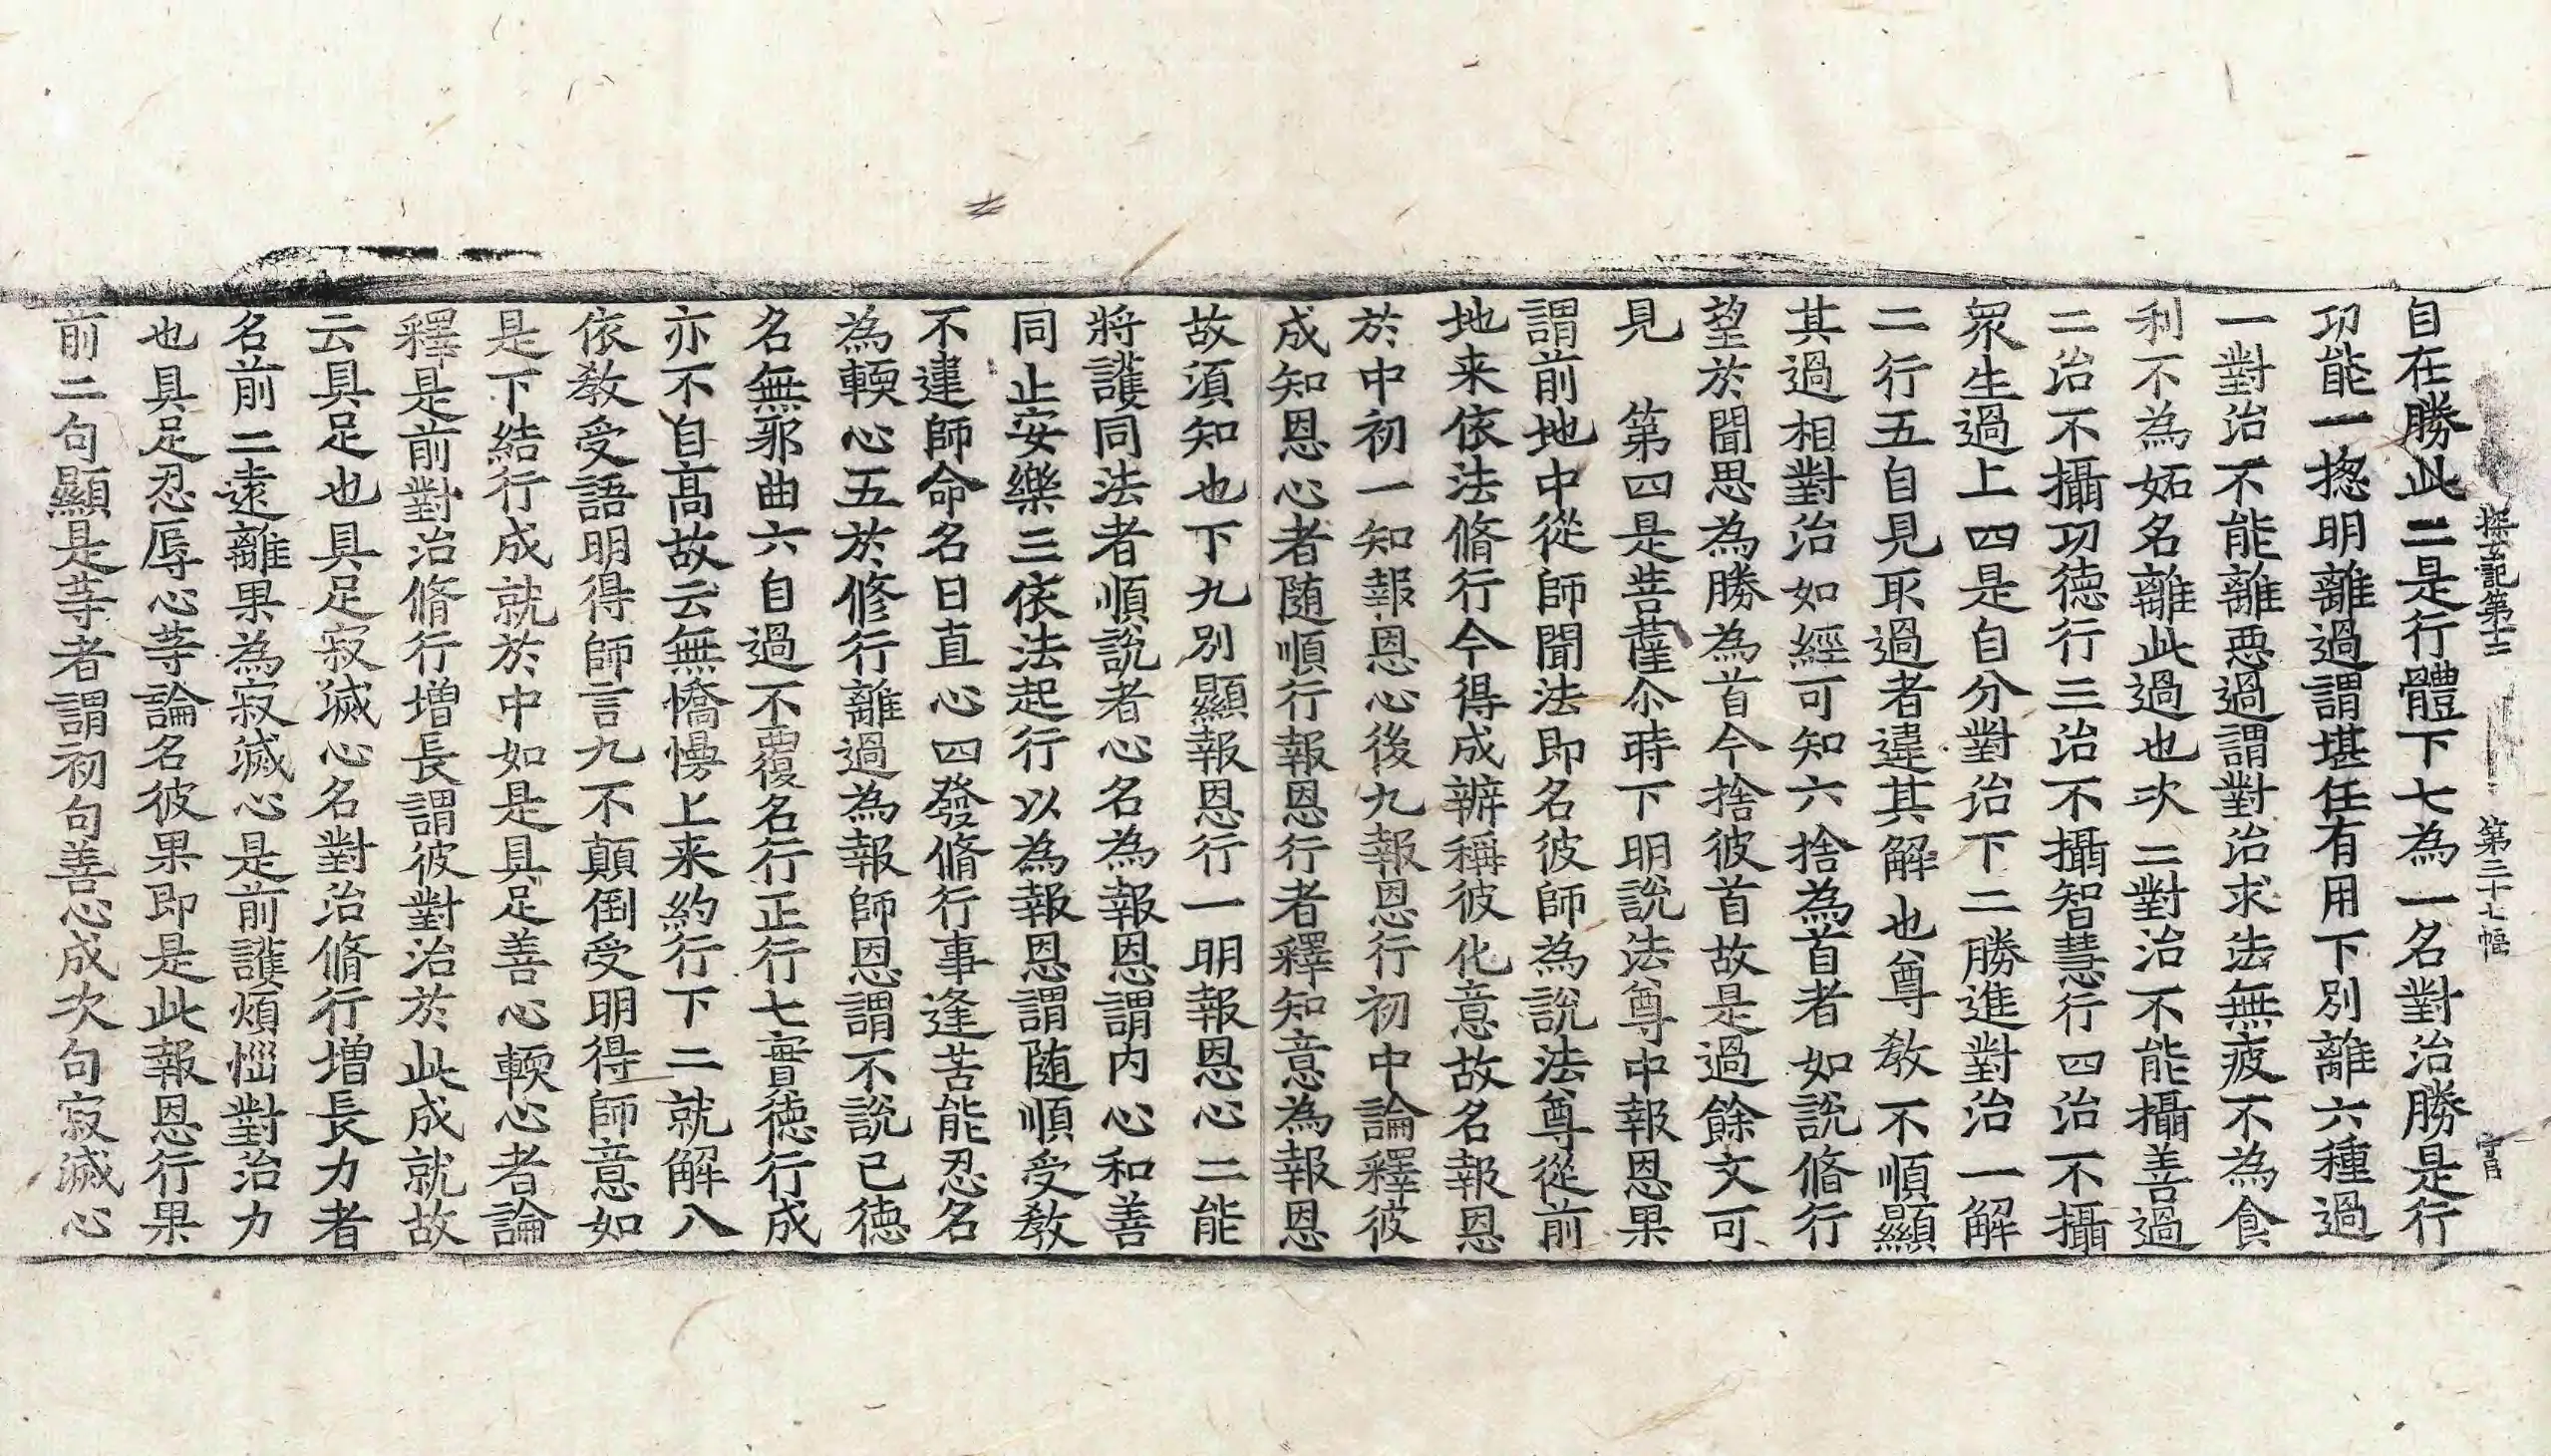 探玄記第十三 第三十七幅 官
自在勝此二是行體下七為一名對治勝是行
功能一揔明離過謂堪任有用下別離六種過
一對治不能離惡過謂對治求法無疲不為食
利不為妬名離此過也次二對治不能攝善過
二治不攝功德行三治不攝智慧行四治不攝
眾生過上四是自分對治下二勝進對治一解
二行五自見取過者違其解也尊教不順顯
其過相對治如經可知六捨為首者如說脩行
望於聞思為勝為首今捨彼首故是過餘文可
見 第四是菩薩尒時下明說法尊中報恩果
謂前地中從師聞法即名彼師為說法尊從前
地来依法脩行今得成辦稱彼化意故名報恩
於中初一知報恩心後九報恩行初中論釋彼
成知恩心者随順行報恩行者釋知意為報恩
故須知也下九別顯報恩行一明報恩心二能
將護同法者順說者心名為報恩謂內心和善
同止安樂三依法起行以為報恩謂随順受教
不違師命名曰直心四發脩行事逢苦能忍名
為輭心五於修行離過為報師恩謂不說己德
名無邪曲六自過不覆名行正行七實德行成
亦不自高故云無憍慢上来約行下二就解八
依教受語明得師言九不顛倒受明得師意如
是下結行成就於中如是具足善心輭心者論
釋是前對治脩行增長謂彼對治於此成就故
云具足也具足寂滅心名對治脩行增長力者
名前二遠離果為寂滅心是前護煩惱對治力
也具足忍辱心等論名彼果即是此報恩行果
前二句顯是等者謂初句善心成次句寂滅心